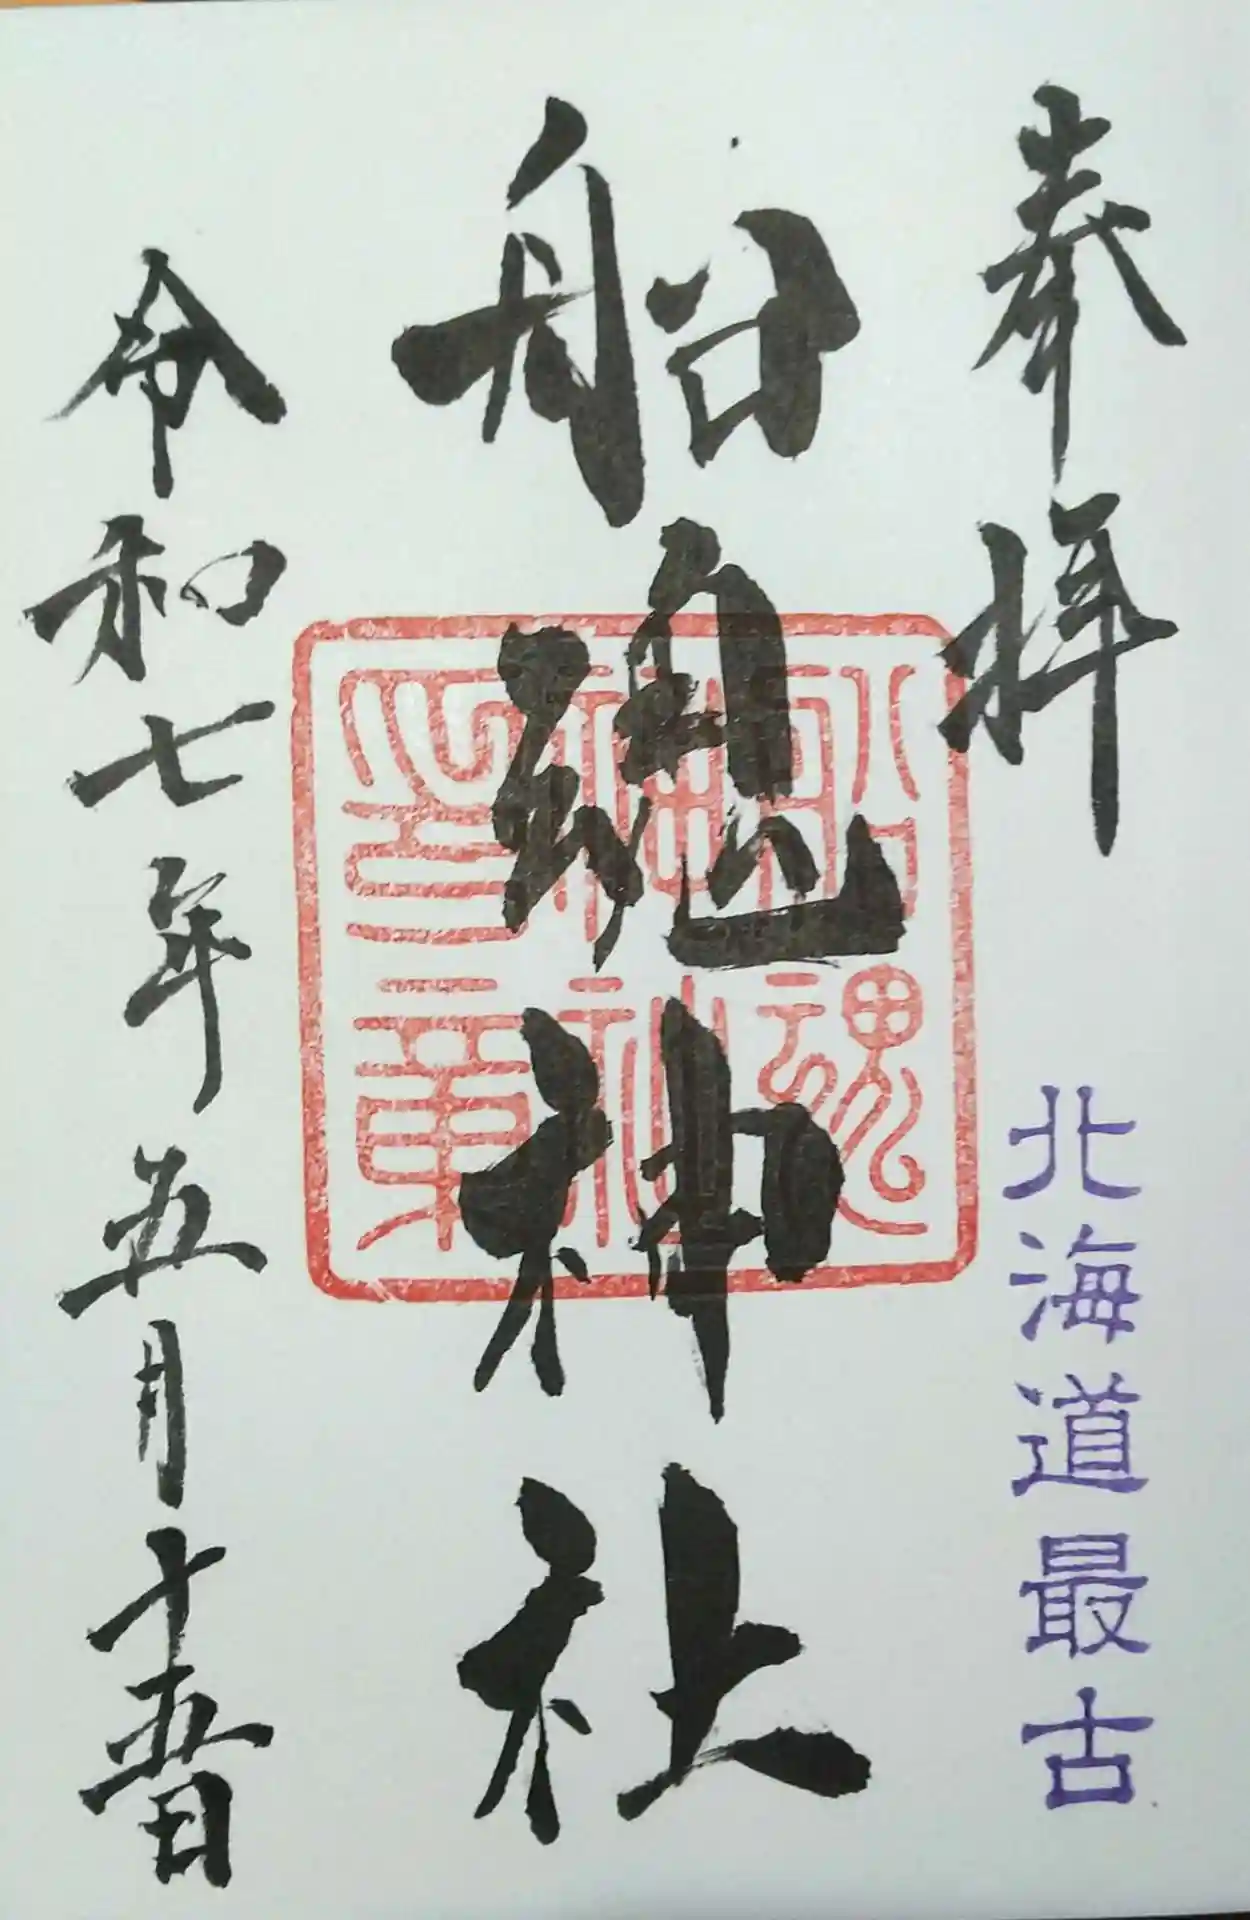 奉拝
北海道最古
船魂神社
船魂神社印章
令和七年五月十五日